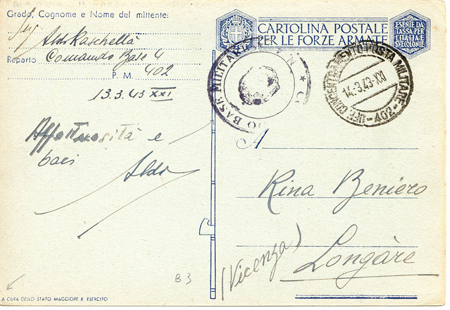 Grado, Cognome e Nome del mittente:
Aldo Raschellà
Reparto Comando Base 4
P. M. 402
13.3.43 XXI
Affettuosità e
baci Aldo
CARTOLINA POSTALE
PER LE FORZE ARMATE
È ESENTE DA
TASSA PER
L'ITALIA E
SUE COLONIE
BASE MILITARE
POSTA MILITARE
14.3.43.XXI
A
Rina Beniero
(Vicenza)
Longàre
B3
A CURA DELLO STATO MAGGIORE R. ESERCITO